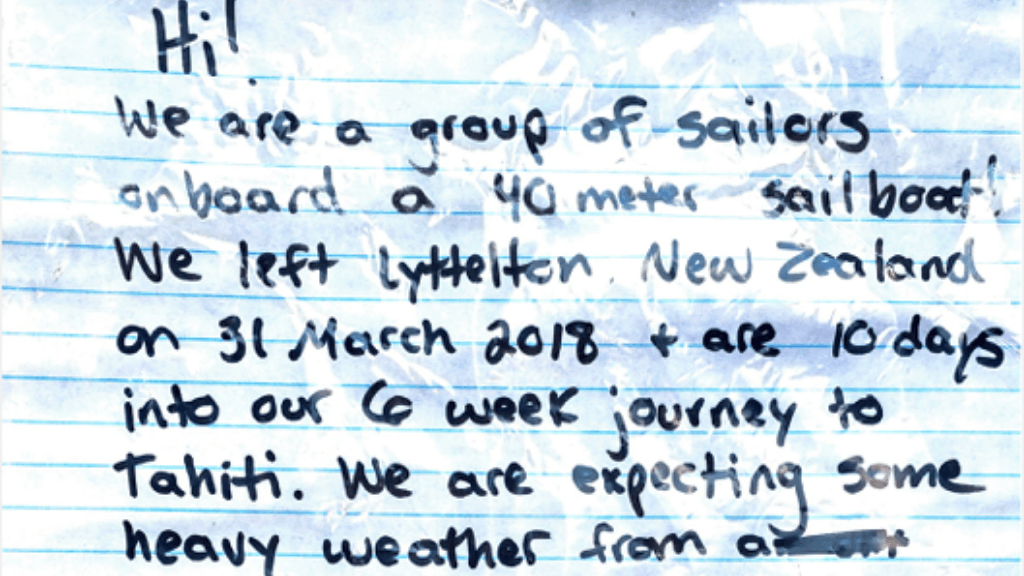 Hi!
We are a group of sailors
onboard a 40 meter sailboat!
We left Lyttelton, New Zealand
on 31 March 2018 + are 10 days
into our 6 week journey to
Tahiti. We are expecting some
heavy weather from a